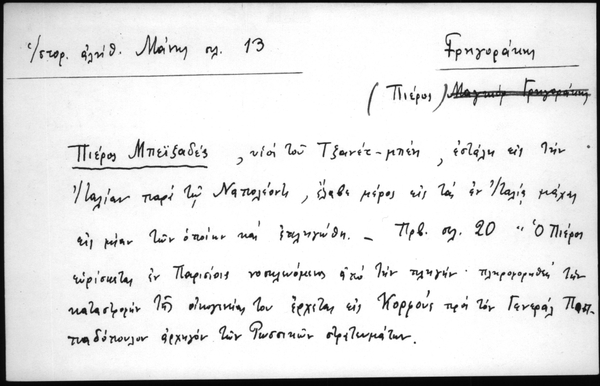 Ἱστορ. ἀλήθ. Μάνης σελ. 13
Γρηγοράκης
(Πιέρος)
Πιέρος Μπεϊζαδές, υἱός τοῦ Τζανέτ-μπέη, ἐστάλη εἰς τήν
Ἰταλίαν παρά τῷ Ναπολέοντι, ἔλαβε μέρος εἰς τάς ἐν Ἰταλίᾳ μάχας
εἰς μίαν τῶν ὁποίων καί ἐπληγώθη. – Πρβ. σελ. 20 "Ὁ Πιέρος
εὑρίσκεται ἐν Παρισίοις νοσηλευόμενος ἀπό τήν πληγήν· πληροφορηθείς τήν
καταστροφήν τῆς οἰκογενείας του ἔρχεται εἰς Κορφούς πρός τόν Γενεράλ Παπ-
παδόπουλον ἀρχηγόν τῶν Ρωσσικῶν στρατευμάτων.